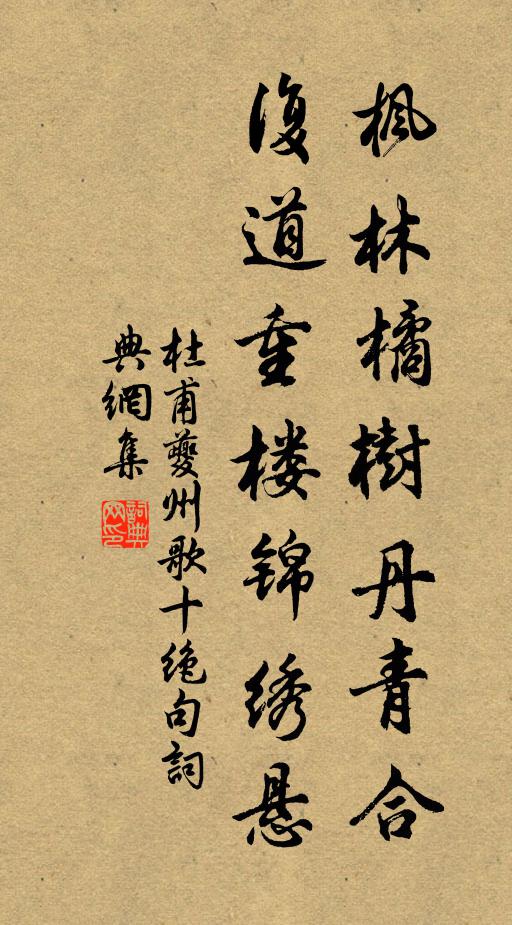 枫林橘樹丹青合
復道重楼锦绣悬
杜甫夔州歌十绝句詞
典網集
詞典
网印